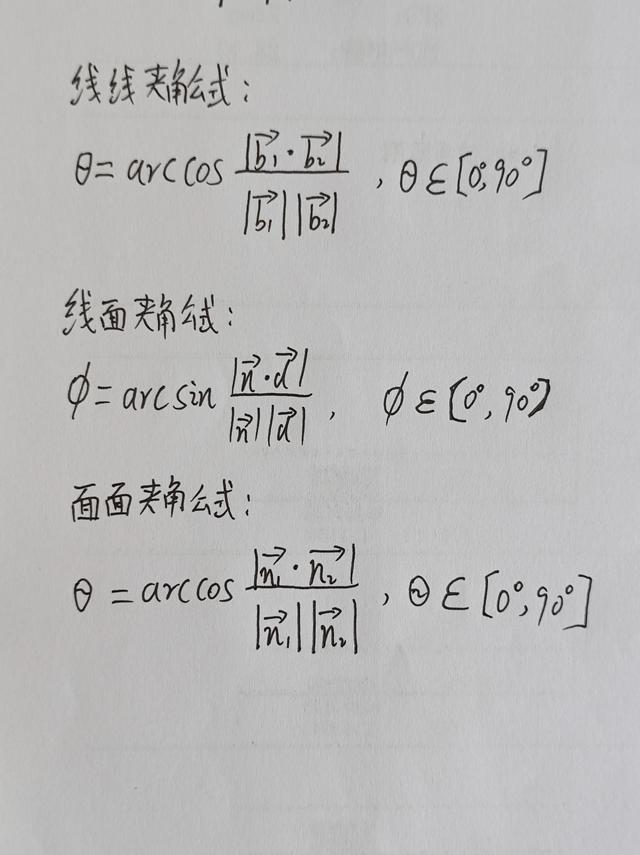 线线夹角公式:
θ = arccos |b₁⃗·b₂⃗| / |b₁⃗||b₂⃗| , θ ∈ [0°, 90°]
线面夹角公式:
ϕ = arcsin |n⃗·d⃗| / |n⃗||d⃗| , ϕ ∈ [0°, 90°)
面面夹角公式:
θ = arccos |n₁⃗·n₂⃗| / |n₁⃗||n₂⃗| , θ ∈ [0°, 90°]